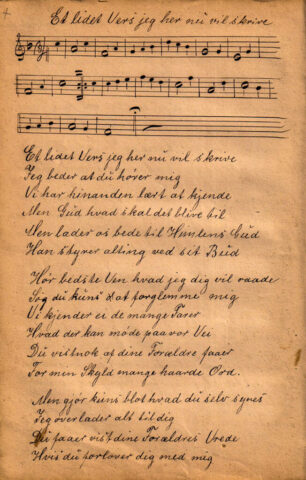 4
Et lidet Vers jeg her nú vil skrive
Et lidet Vers jeg her nú vil skrive
Jeg beder at dú hører mig
Vi har hinanden lært at kjende
Men Gúd hvad skal det blive til
Men lader os bede til Himlens Gúd
Han styrer alting ved sit Búd
Hør bedste Ven hvad jeg dig vil raade
Søg dú kúns at forglemme mig
Vi kjender ei de mange Farer
Hvad der kan møde paa vor Vei
Dú vistnok af dine Forældre faaer
For min Skyld mange haarde Ord.
Men gjør kúns blot hvad dú selv synes
Jeg overlader alt til dig
Dú faaer vist dine Forældres Vrede
Hvis dú forlover dig med mig